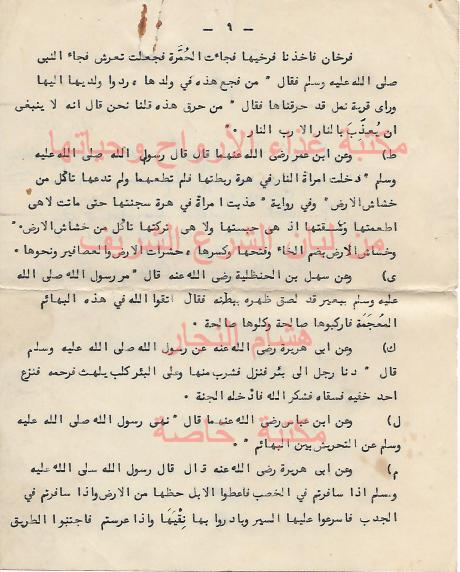 — ٩ —
فرخان فاخذنا فرخيها فجاءت الحُمَّرة فجعلت تعرش فجاء النبى
صلى الله عليه وسلم فقال " من فجع هذه في ولدها ه ردوا ولديها اليها
وراى قرية نمل قد حرقناها فقال " من حرق هذه قلنا نحن قال انه لا ينبغى
ان يُعذِّبَ بالنار الا رب النار . "
مكتبة غذاء الأرواح وحياتها
ط) وعن ابن عمر رضى الله عنهما قال قال رسول الله صلى الله عليه
وسلم " دخلت امراة النار في هرة ربطتها فلم تطعمها ولم تدعها تاكل من
خشاش الارض " وفي رواية " عذبت امراة في هرة سجنتها حتى ماتت لاهى
اطعمتها وسقتها اذ هى حبستها ولا هى تركتها تاكل من خشاش الارض "
من لبنان الشرع الشريف
وخشاش الارض بضم الخاء وفتحها وكسرها ه حشرات الارض والعصافير ونحوها ه
ى) وعن سهل بن الحنظلية رضى الله عنه قال " مر رسول الله صلى الله
عليه وسلم ببعير قد لصق ظهره ببطنه فقال اتقوا الله في هذه البهائم
المعجَمَة فاركبوها صالحة وكلوها صالحة ٠
هشام النجار
ك) وعن ابى هريرة رضى الله عنه عن رسول الله صلى الله عليه وسلم
قال " دنا رجل الى بئر فنزل فشرب منها وعلى البئر كلب يلهث فرحمه فنزع
احد خفيه فسقاه فشكر الله فادخله الجنة ٠
مكتبة خاصة
ل) وعن ابن عباس رضى الله عنهما قال " نهى رسول الله صلى الله عليه
وسلم عن التحريش بين البهائم " ٠
م) وعن ابى هريرة رضى الله عنه قال قال رسول الله سلى الله عليه
وسلم اذا سافرتم في الخصب فاعطوا الابل حظها من الارض واذا سافرتم في
الجدب فاسرعوا عليها السير وبادروا بها نِقْيَهَا واذا عرستم فاجتنبوا الطريق